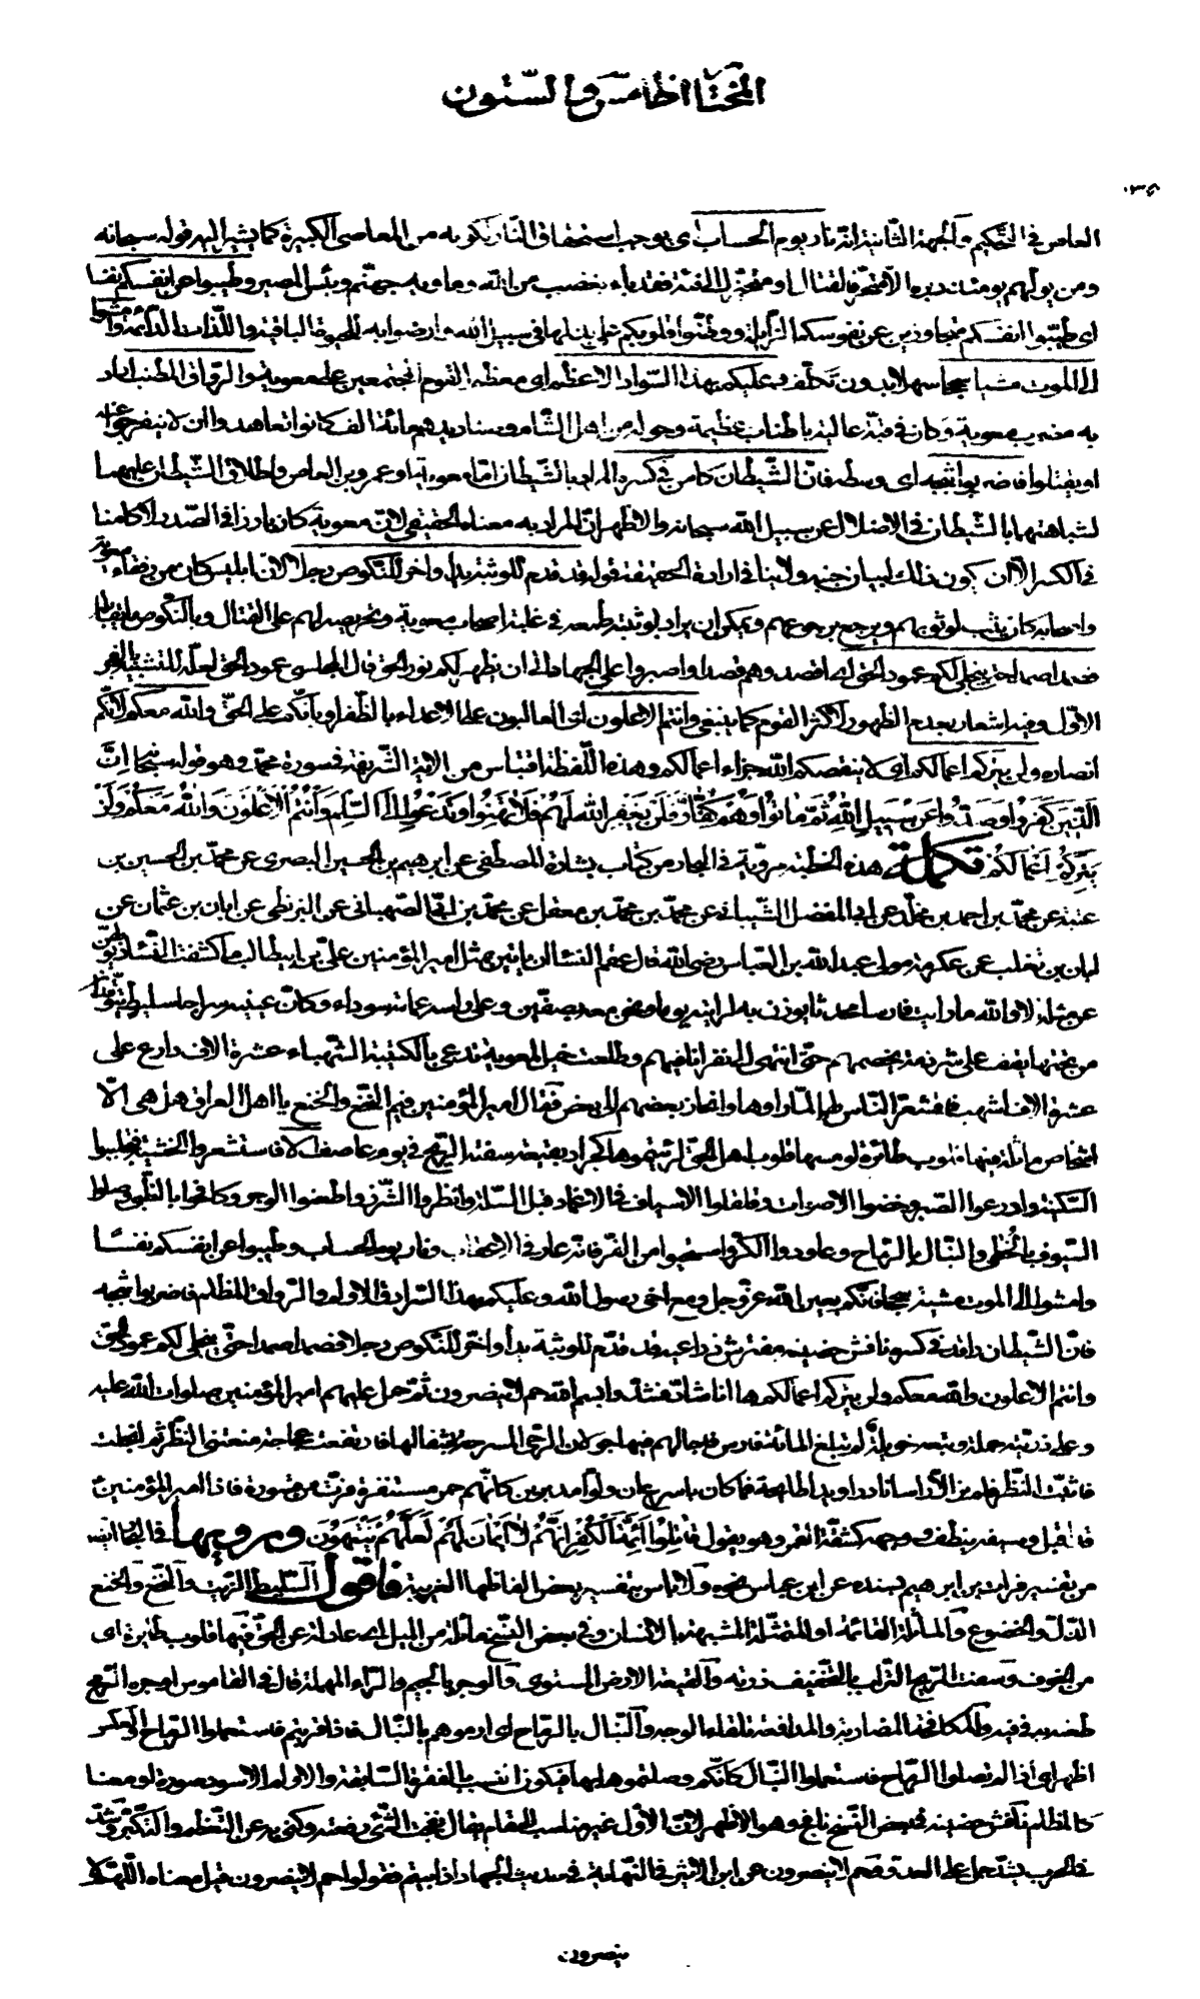 المختار الخامس والستون
العاص في التحكيم والجهة الثانية انه نار يوم الحساب اى يوجب استحقاق النار لكونه من المعاصى الكبيرة كما يشير اليه قوله سبحانه
ومن يولهم يومئذ دبره الا متحرفا لقتال او متحيزا الى فئة فقد باء بغضب من الله وماويه جهنم وبئس المصير وطيبوا عن انفسكم نفسا
اى طيبوا انفسكم متجاوزين عن نفوسكم الزايلة ووطنوا قلوبكم على بذلها في سبيل الله وارضوا به للحيوة الباقية واللذات الدائمة وامشوا
الى الموت مشيا سجحا سهلا بدون تكلف وعليكم بهذا السواد الاعظم اى معظم القوم المجتمعين على معوية والرواق المطنب اراد
به مضرب معوية وكان في قبة عالية باطناب عظيمة وحوله من اهل الشام وصناديدهم مائة الف كانوا تعاهدوا ان لا ينفرجوا عنه
او يقتلوا فاضربوا ثبجه اى وسطه فان الشيطان كامن في كسره المراد بالشيطان اما معوية او عمرو بن العاص واطلاق الشيطان عليهما
لشباهتهما بالشيطان في الاضلال عن سبيل الله سبحانه والاظهر ان المراد به معناه الحقيقى لان معوية كان بارزا في الصدر لا كامنا
في الكسر الا ان يكون ذلك لبيان جبنه ولا ينافى ارادة الحقيقة قوله قد قدم للوثبة يدا واخر للنكوص رجلا لان ابليس كان من رفقاء معوية
واصحابه كان يثب لوثوبهم ويرجع برجوعهم ويمكن ان يراد بوثبته طمعه في غلبة اصحاب معوية وتحريصه لهم على القتال وبالنكوص ما يقابله
فصمدا صمدا حتى ينجلى لكم عمود الحق اى اقصدوهم قصدا واصبروا على الجهاد الى ان يظهر لكم نور الحق قال المجلسى عمود الحق لعله للتشبيه بالفجر
الاول وفيه اشعار بعدم الظهور لاكثر القوم كما ينبغى وانتم الاعلون اى الغالبون على الاعداء بالظفر او بانكم على الحق والله معكم لانكم
انصاره ولن يتركم اعمالكم اى لا ينقصكم الله جزاء اعمالكم وهذه اللفظة اقتباس من الاية الشريفة في سورة محمد وهو قوله سبحانه ان
الذين كفروا وصدوا عن سبيل الله ثم ماتوا وهم كفار فلن يغفر الله لهم فلا تهنوا وتدعوا الى السلم وانتم الاعلون والله معكم ولن
يتركم اعمالكم تكملة هذه الخطبة مروية في البحار من كتاب بشارة المصطفى عن ابرهيم بن الحسين البصرى عن محمد بن الحسين بن
عتبة عن محمد بن احمد بن مخلد عن ابى المفضل الشيبانى عن محمد بن محمد بن معقل عن محمد بن ابى الصهبانى عن البزنطى عن ابان بن عثمان عن
ابان بن تغلب عن عكرمة مولى عبد الله بن العباس رضى الله قال عقم النساء ان ياتين بمثل امير المؤمنين على بن ابيطالب ما كشفت النساء ذيولهن
عن مثله لا والله ما رايت فارسا محدثا يوزن به لرايته يوما ونحن معه بصفين وعلى راسه عمامة سوداء وكان عينيه سراجا سليط يتوقدا
من تحتهما يقف على شرذمة يحضهم حتى انتهى الى نفر انا فيهم وطلعت خيل لمعوية تدعى بالكتيبة الشهباء عشرة الاف دارع على
عشرة الاف اشهب فاقشعر الناس لها لما راوها وانحاز بعضهم الى بعض فقال امير المؤمنين فيم النخع والخنع يا اهل العراق هل هى الا
اشخاص ماثلة فيها قلوب طائرة لو مسها قلوب اهل الحق لرئيتموها كجراد بقيعة سفته الريح في يوم عاصف الا فاستشعروا الخشية وتجلببوا
السكينة وادرعوا الصبر وغضوا الاصوات وقلقلوا الاسياف في الاغماد قبل السلة وانظروا الشزر واطعنوا الوجر وكافحوا بالظبى وصلوا
السيوف بالخطى والنبال بالرماح وعاودوا الكر واستحيوا من الفر فانه عار في الاعقاب ونار يوم الحساب وطيبوا عن انفسكم نفسا
وامشوا الى الموت مشية سجحا فانكم بعين الله عز وجل ومع اخى رسول الله وعليكم بهذا السرادق الادلم والرواق المظلم فاضربوا ثبجه
فان الشيطان راقد في كسره نافش حضنيه مفترش ذراعيه قد قدم للوثبة يدا واخر للنكوص رجلا فصمدا صمدا حتى ينجلى لكم عمود الحق
وانتم الاعلون والله معكم ولن يتركم اعمالكم ها انا شاد فشدوا بسم الله حم لا ينصرون ثم حمل عليهم امير المؤمنين صلوات الله عليه
وعلى ذريته حملة وتبعه خويلة لم تبلغ المائة فارس فاجالهم فيها جولان الرحى المسرحة بثقالها فارتفعت عجاجة منعتنى النظر ثم انجلت
فاثبت النظر فلم نر الا راسا نادرا ويدا طايحة فما كان باسرع ان ولوا مدبرين كانهم حمر مستنفرة فرت من قسورة فاذا امير المؤمنين
قد اقبل وسيفه ينطف ووجهه كشقة القمر وهو يقول قاتلوا ائمة الكفر انهم لا ايمان لهم لعلهم ينتهون ومرويها في البحار ايضا
من تفسير فرات بن ابرهيم بسنده عن ابن عباس نحوه ولا باس بتفسير بعض الفاظها الغريبة فاقول السليط الزيت والنخع والخنع
الذل والخضوع والماثلة القائمة او المتمثلة المشبهة بالانسان وفي بعض النسخ مائلة من الميل اى عادلة عن الحق فيها قلوب طايرة اى
من الخوف وسفت الريح التراب بالتخفيف ذرته والقيعة الارض المستوى والوجر بالجيم والراء المهملة قال في القاموس اوجره الرمح
طعنه به في فيه والمكافحة المضاربة والمدافعة تلقاء الوجه والنبال بالرماح اى ارموهم بالنبال فاذا قربتم فاستعملوا الرماح والعكس
اظهر اى اذا لم تصلوا الرماح فاستعملوا النبال كانكم وصلتموها بها فيكون انسب بالفقرة السابقة والادلم الاسود صورة او معنا
كالمظلم نافش حضنيه في بعض النسخ نافج وهو الاظهر لان الاول غير مناسب للمقام يقال نفجت الشئ رفعته وكنى به عن التعظم والتكبر وشد
في الحرب يشد حمل على العدو حم لا ينصرون عن ابن الاثير في النهاية في حديث الجهاد اذا بيتم فقولوا حم لا ينصرون قيل معناه اللهم لا
ينصرون